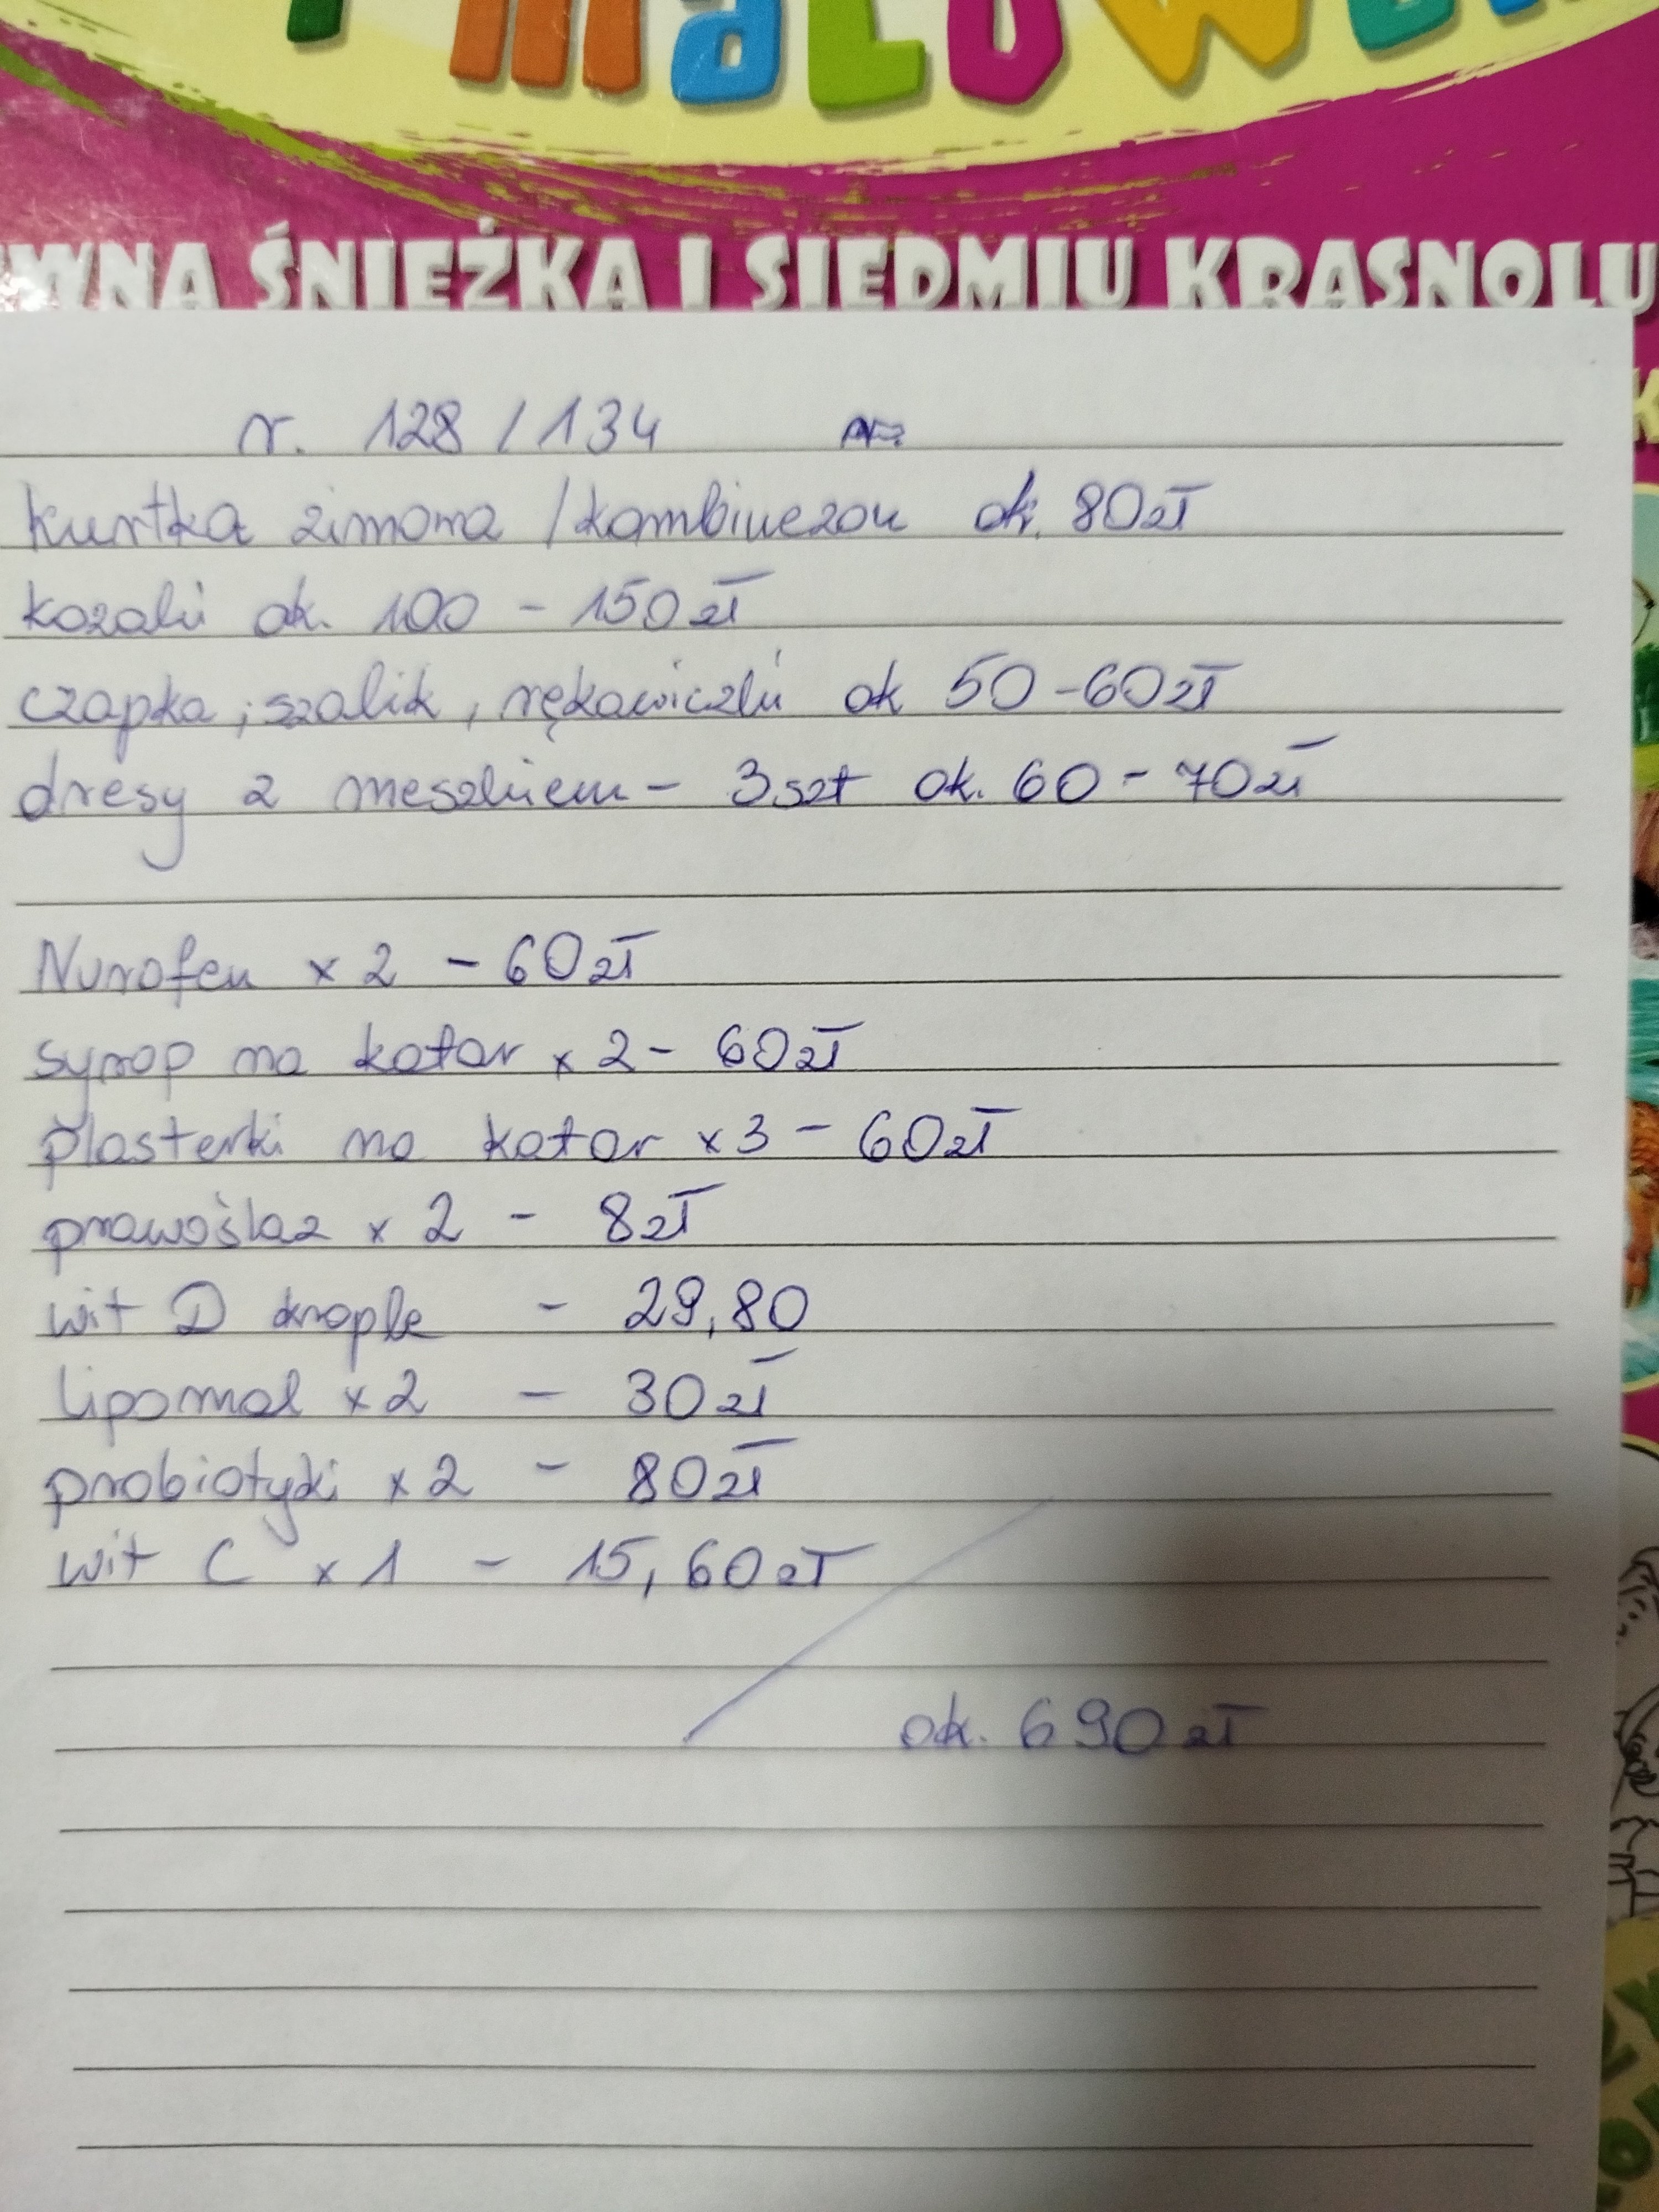 malowan
WNA ŚNIEŻKA I SIEDMIU KRASNOLU
r. 128 / 134
kurtka zimowa / kombinezon ok. 80zł
kozaki ok. 100 - 150 zł
czapka, szalik, rękawiczki ok 50-60zł
dresy z meszkiem - 3szt ok. 60 - 70zł
Nurofen x 2 - 60zł
syrop na katar x 2 - 60zł
plasterki na katar x 3 - 60zł
prawoślaz x 2 - 8zł
wit D krople - 29,80
lipomal x 2 - 30zł
probiotyki x 2 - 80zł
wit C x 1 - 15,60zł
ok. 690 zł